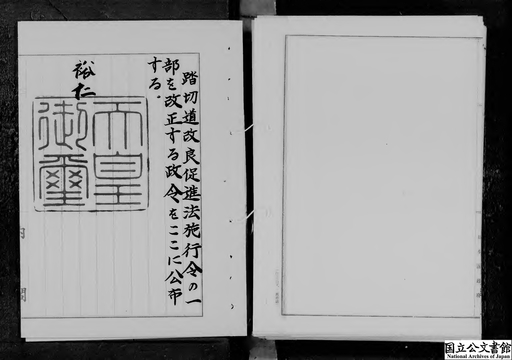 踏切道改良促進法施行令の一
部を改正する政令をここに公布
する。
裕仁
天皇
御璽
内
閣
国立公文書館
National Archives of Japan